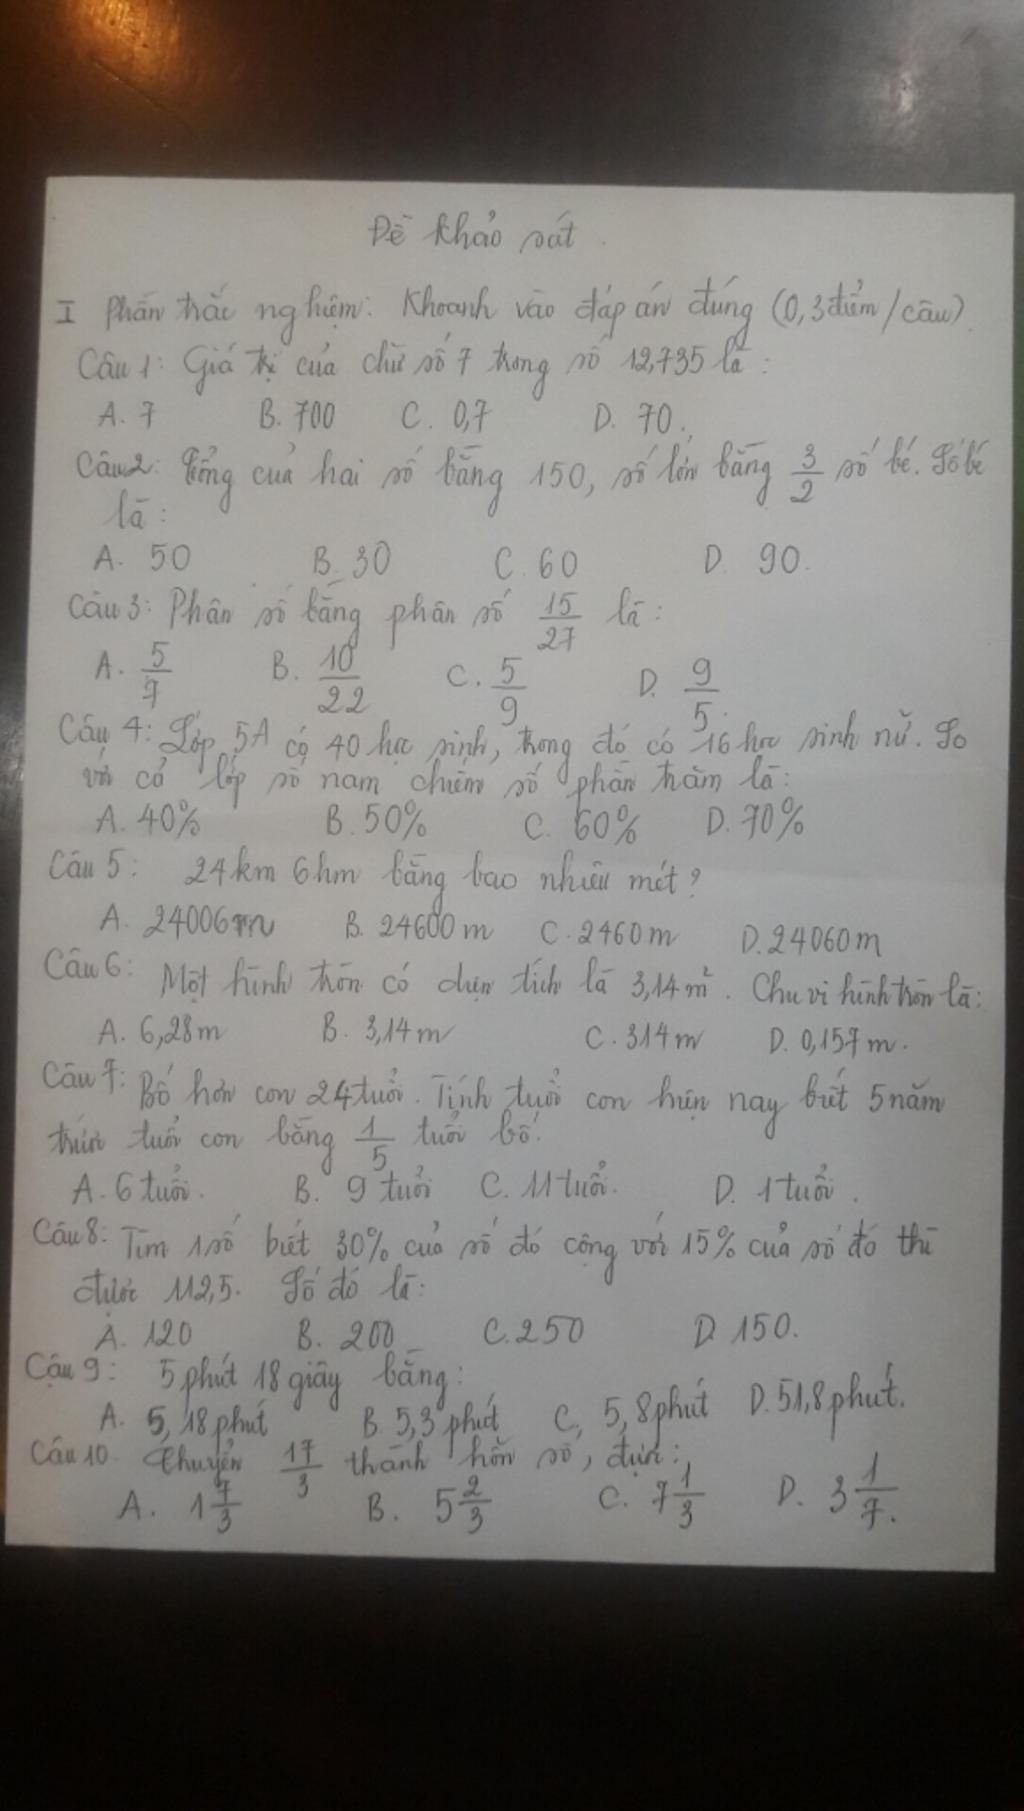 Đề khảo sát.
I Phần trắc nghiệm: Khoanh vào đáp án đúng (0,3 điểm/câu).
Câu 1: Giá trị của chữ số 7 trong số 12,735 là:
A. 7 B. 700 C. 0,7 D. 70.
Câu 2: Tổng của hai số bằng 150, số lớn bằng 3/2 số bé. Số bé
là:
A. 50 B. 30 C. 60 D. 90.
Câu 3: Phân số bằng phân số 15/27 là:
A. 5/7 B. 10/22 C. 5/9 D. 9/5.
Câu 4: Lớp 5A có 40 học sinh, trong đó có 16 học sinh nữ. So
với cả lớp số nam chiếm số phần trăm là:
A. 40% B. 50% C. 60% D. 70%
Câu 5: 24km 6hm bằng bao nhiêu mét?
A. 24006m B. 24600m C. 2460m D. 24060m
Câu 6: Một hình tròn có diện tích là 3,14m². Chu vi hình tròn là:
A. 6,28m B. 3,14m C. 314m D. 0,157m.
Câu 7: Bố hơn con 24 tuổi. Tính tuổi con hiện nay biết 5 năm
trước tuổi con bằng 1/5 tuổi bố.
A. 6 tuổi. B. 9 tuổi C. 11 tuổi. D. 1 tuổi.
Câu 8: Tìm 1 số biết 30% của số đó cộng với 15% của số đó thì
được 112,5. Số đó là:
A. 120 B. 200 C. 250 D. 150.
Câu 9: 5 phút 18 giây bằng:
A. 5,18 phút B. 5,3 phút C. 5,8 phút D. 51,8 phút.
Câu 10. Chuyển 17/3 thành hỗn số, được:
A. 1 7/3 B. 5 2/3 C. 7 1/3 D. 3 1/7.